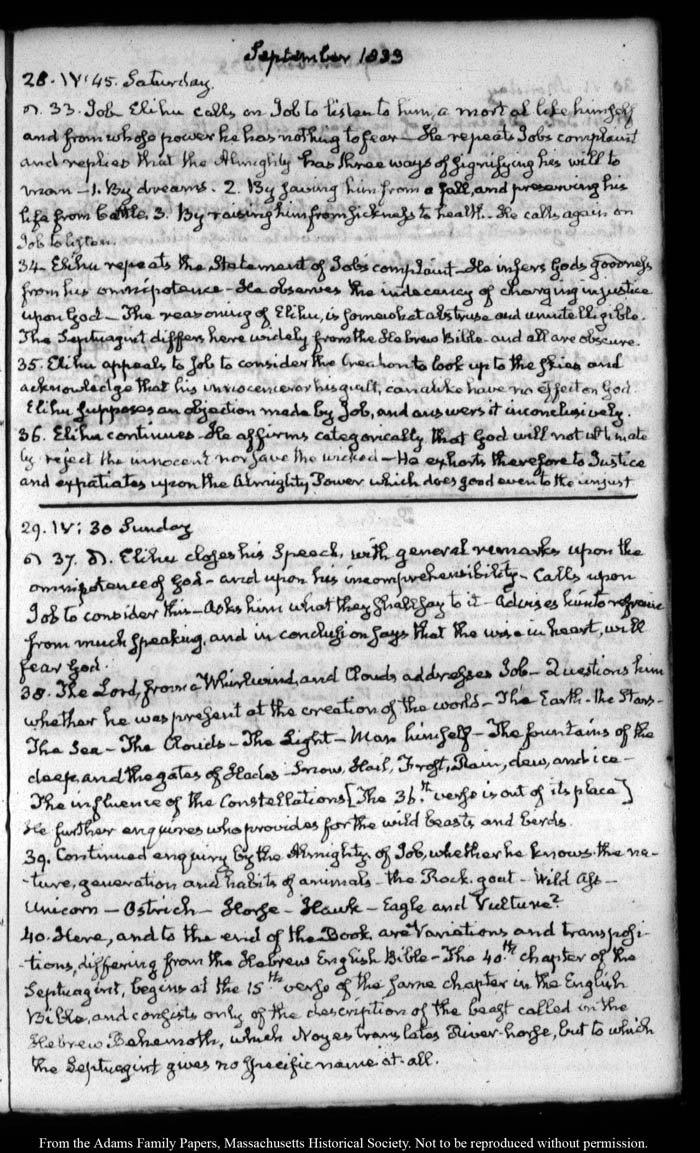 September 1833
28. IV: 45. Saturday.
33. Job Elihu calls on Job to listen to him, a mortal like himself
and from whose power he has nothing to fear — He repeats Jobs complaint
and replies that the Almighty has three ways of signifying his will to
man — 1. By dreams. 2. By saving him from a fall, and preserving his
life from battle. 3. By raising him from sickness to health. He calls again on
Job to listen.
34 Elihu repeats the statement of Jobs complaint — He infers Gods goodness
from his omnipotence — He observes the indecency of charging injustice
upon God — The reasoning of Elihu, is somewhat abstruse and unintelligible.
The Septuagint differs here widely from the Hebrew Bible and all are obscure.
35. Elihu appeals to Job to consider the Creation to look up to the skies and
acknowledge that his innocence or his guilt, can alike have no effect on God.
Elihu supposes an objection made by Job, and answers it inconclusively.
36. Elihu continues — He affirms categorically that God will not ultimate
ly reject the innocent nor save the wicked — He exhorts therefore to Justice
and expatiates upon the Almighty Power which does good even to the unjust
29. IV: 30 Sunday
37. Elihu closes his Speech, with general remarks upon the
omnipotence of God — and upon his incomprehensibility — Calls upon
Job to consider this — Asks him what they shall say to it — Advises him to refrain
from much speaking, and in conclusion says that the wise in heart, will
fear God.
38. The Lord, from a Whirlwind, and Clouds addresses Job — Questions him
whether he was present at the creation of the world — The Earth — the Stars —
The Sea — The Clouds — The Light — Man himself — The fountains of the
deep, and the gates of Hades — Snow, Hail, Frost, Rain, dew, and ice —
The influence of the Constellations [The 36.th verse is out of its place]
He further enquires who provides for the wild beasts and birds.
39. Continued enquiry by the Almighty, of Job, whether he knows the na-
ture, generation and habits of animals — the Rock-goat — Wild Ass —
Unicorn — Ostrich — Horse — Hawk — Eagle and Vulture?
40. Here, and to the end of the Book, are Variations and transposi-
tions, differing from the Hebrew English Bible — The 40th chapter of the
Septuagint, begins at the 15th verse of the same chapter in the English
Bible, and consists only of the description of the beast called in the
Hebrew Behemoth, which Noyes translates River-horse, but to which
the Septuagint gives no specific name at all.
From the Adams Family Papers, Massachusetts Historical Society. Not to be reproduced without permission.